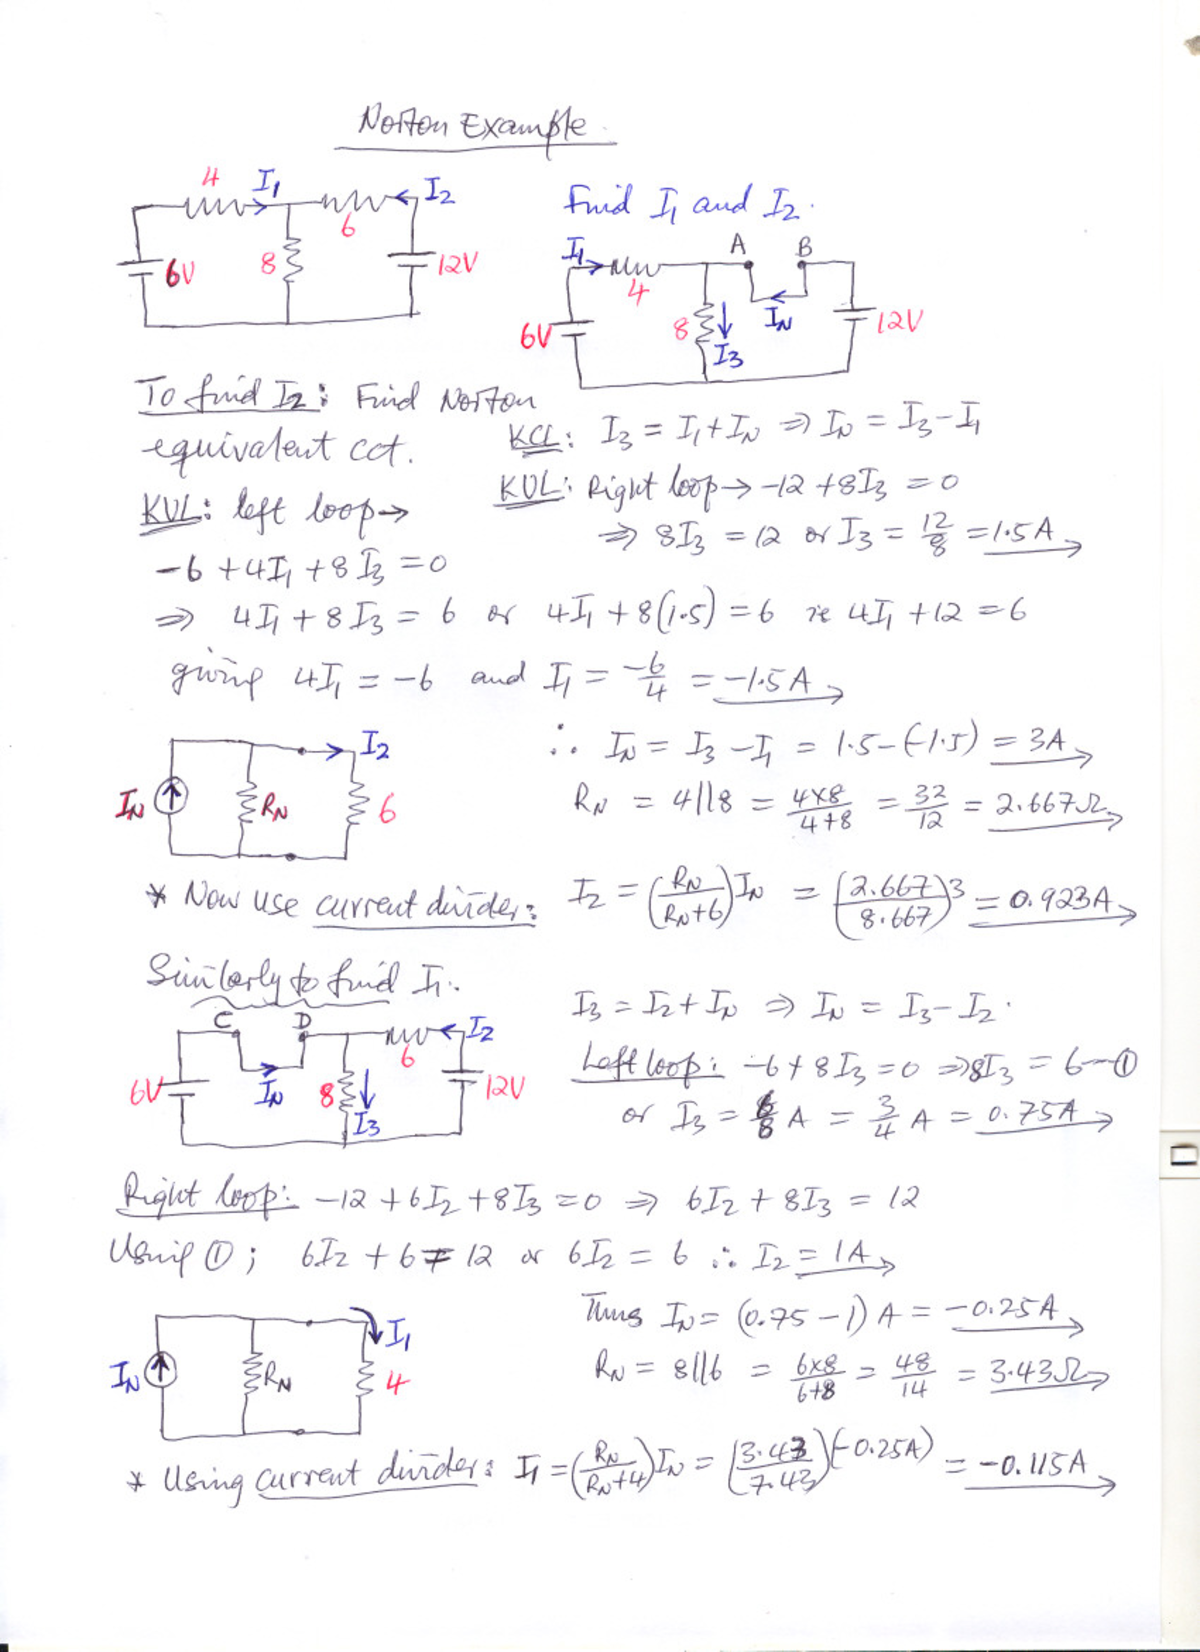 Norton Example.
4 I₁ I₂
6
6V 8 12V
Find I₁ and I₂.
I₁ A B
4
6V 8 I_N 12V
I₃
To find I₂: Find Norton
equivalent cct.
KCL: I₃ = I₁ + I_N ⇒ I_N = I₃ - I₁
KVL: Right loop → -12 + 8I₃ = 0
⇒ 8I₃ = 12 or I₃ = 12/8 = 1.5A
KVL: left loop →
-6 + 4I₁ + 8I₃ = 0
⇒ 4I₁ + 8I₃ = 6 or 4I₁ + 8(1.5) = 6 ie 4I₁ + 12 = 6
giving 4I₁ = -6 and I₁ = -6/4 = -1.5A
I₂
I_N R_N 6
∴ I_N = I₃ - I₁ = 1.5 - (-1.5) = 3A
R_N = 4||8 = 4x8/4+8 = 32/12 = 2.667Ω
* Now use current divider: I₂ = (R_N/R_N+6) I_N = (2.667/8.667)3 = 0.923A
Similarly to find I₁.
C D I₂
6
6V I_N 8 12V
I₃
I₃ = I₂ + I_N ⇒ I_N = I₃ - I₂.
Left loop: -6 + 8I₃ = 0 ⇒ 8I₃ = 6 — ①
or I₃ = 6/8 A = 3/4 A = 0.75A
Right loop: -12 + 6I₂ + 8I₃ = 0 ⇒ 6I₂ + 8I₃ = 12
Using ①; 6I₂ + 6 = 12 or 6I₂ = 6 ∴ I₂ = 1A
Thus I_N = (0.75 - 1) A = -0.25A
I₁
I_N R_N 4
R_N = 8||6 = 6x8/6+8 = 48/14 = 3.43Ω
* Using current divider: I₁ = (R_N/R_N+4) I_N = (3.43/7.43)(-0.25A) = -0.115A